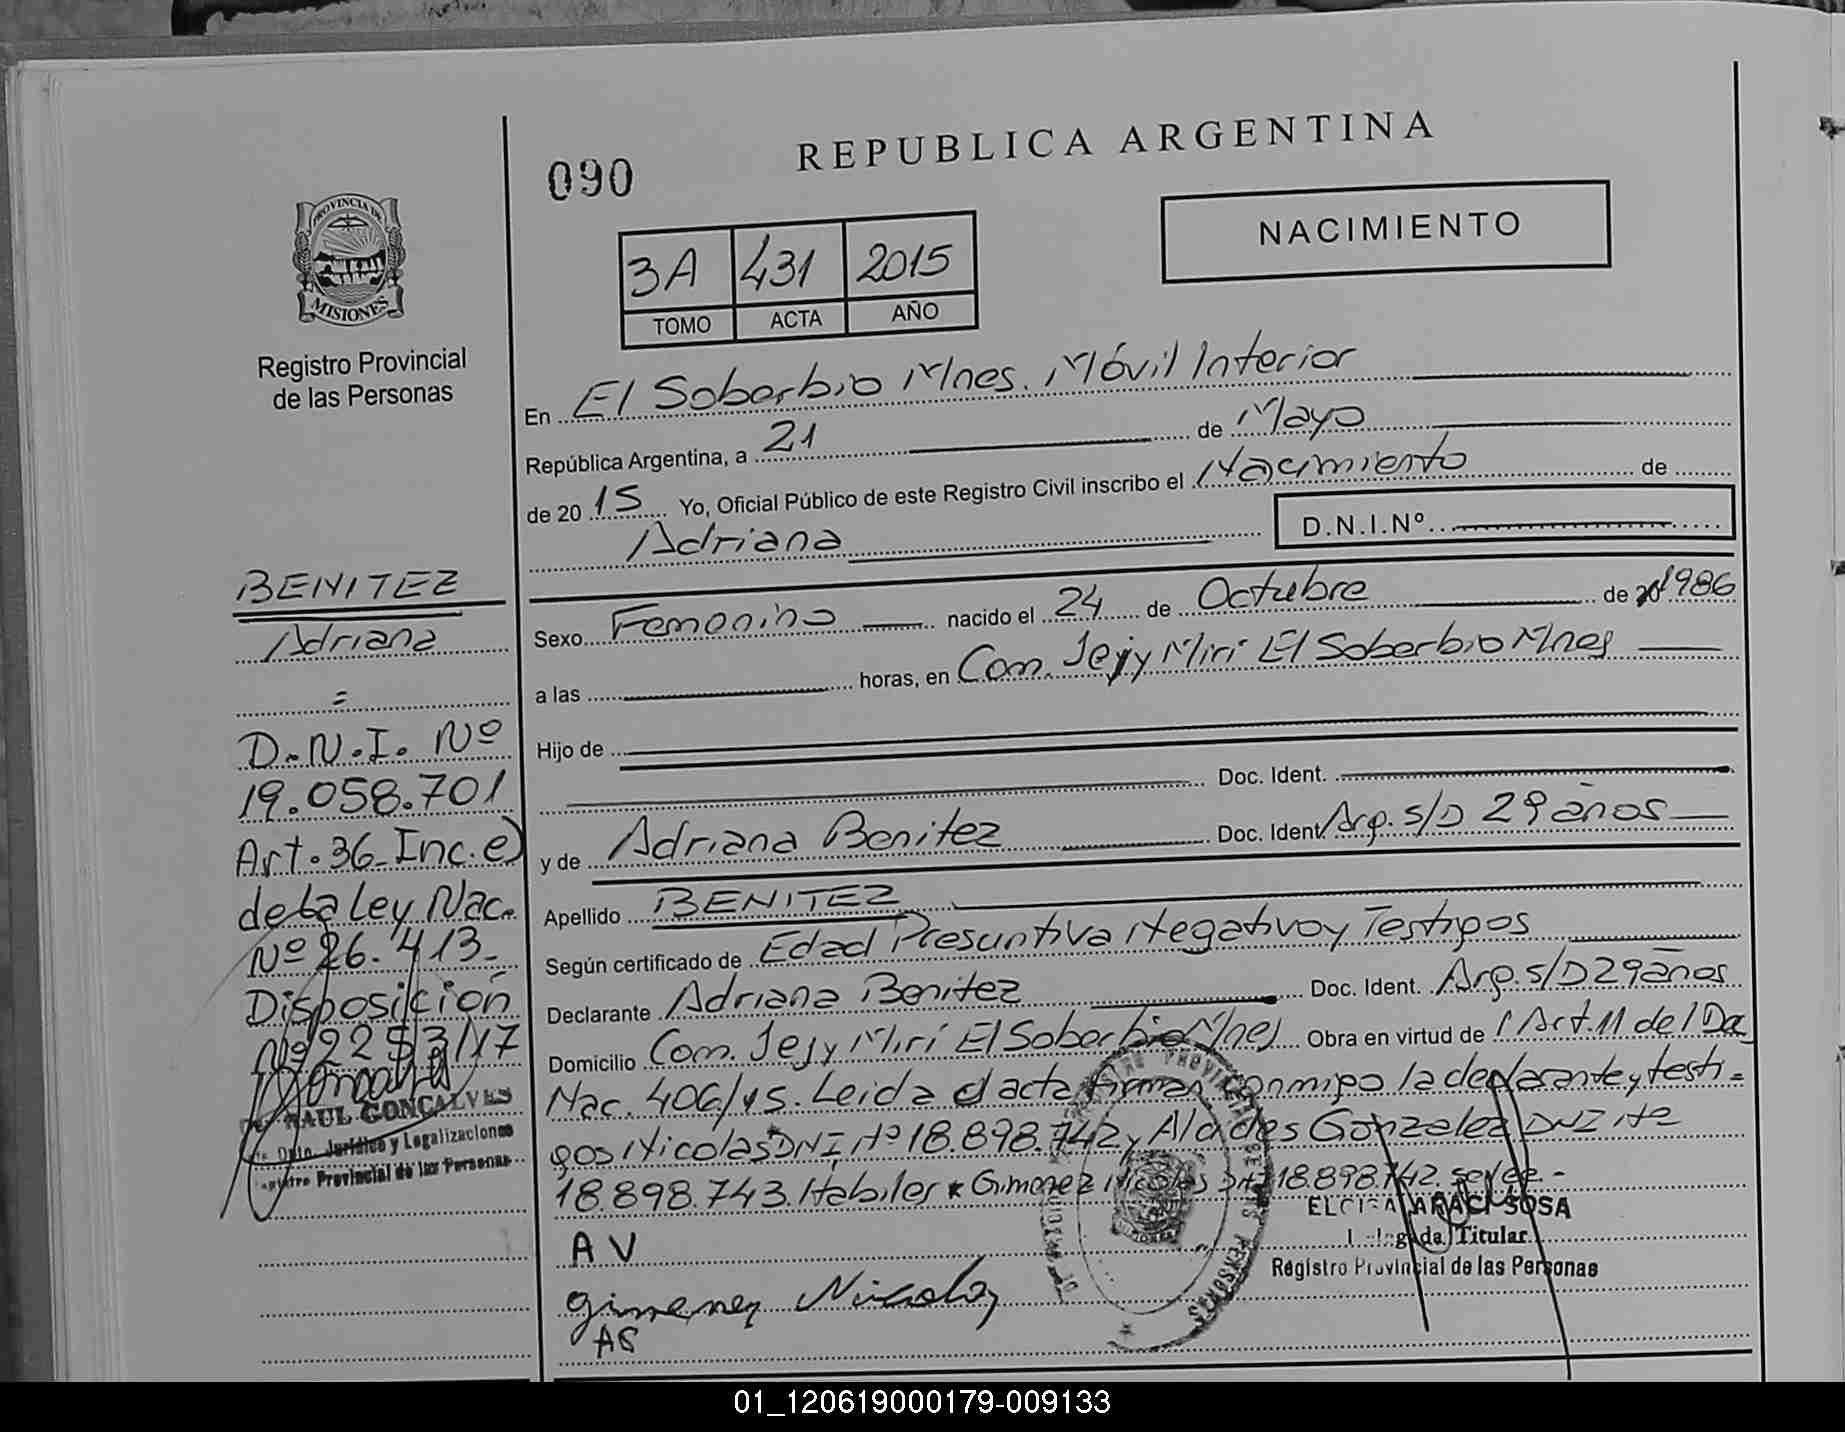 REPUBLICA ARGENTINA
090
NACIMIENTO
3A 431 2015
TOMO ACTA AÑO
PROVINCIA DE
MISIONES
Registro Provincial
de las Personas
En El Soberbio Mnes. Móvil Interior
República Argentina, a 21 de Mayo
de 20 15 Yo, Oficial Público de este Registro Civil inscribo el Nacimiento de
Adriana D.N.I.Nº
Sexo Femenino nacido el 24 de Octubre de 20 1986
a las horas, en Com. Jejy Miri El Soberbio Mnes
Hijo de
Doc. Ident.
y de Adriana Benitez Doc. Ident Arg. s/D 29 años
Apellido BENITEZ
Según certificado de Edad Presuntiva Negativo y Testigos
Declarante Adriana Benitez Doc. Ident. Arg. s/D 29 años
Domicilio Com. Jejy Mirí El Soberbio Mnes Obra en virtud de l Art. 11 del Dec
Nac. 406/15. Leida el acta firman conmigo la declarante y testi=
gos Nicolas* DNI Nº 18.898.742 y Alcides Gonzalez DNI Nº
18.898.743. Habiles * Gimenez Nicolas 18.898.742.
A V
Gimenez Nicolas
AG
ELCIRA ARACI SOSA
Delegada Titular
Registro Provincial de las Personas
BENITEZ
Adriana
=
D.N.I. Nº
19.058.701
Art. 36 Inc. e)
de la Ley Nac.
Nº 26.413_
Disposición
Nº 2253/17
RAUL GONCALVES
Dpto. Jurídico y Legalizaciones
Registro Provincial de las Personas
01_120619000179-009133